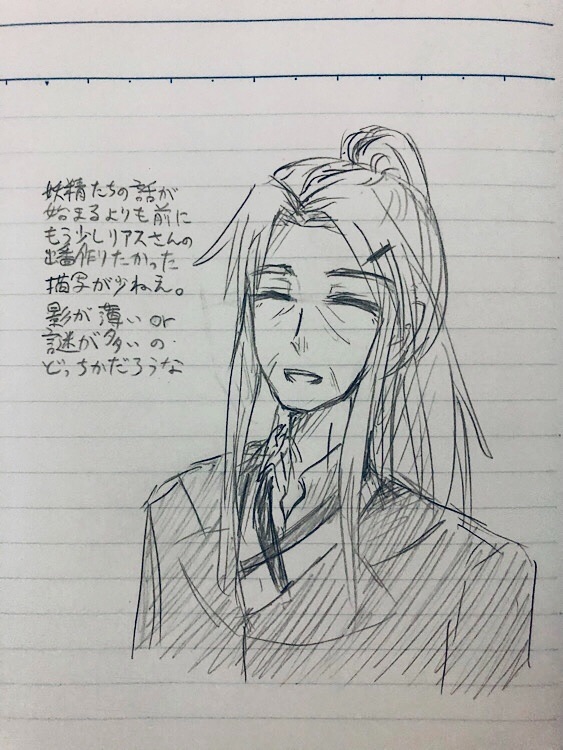 妖精たちの話が
始まるよりも前に
もう少しリアスさんの
出番作りたかった
描写が少ねえ。
影が薄い or
謎が多い の
どっちかだろうな